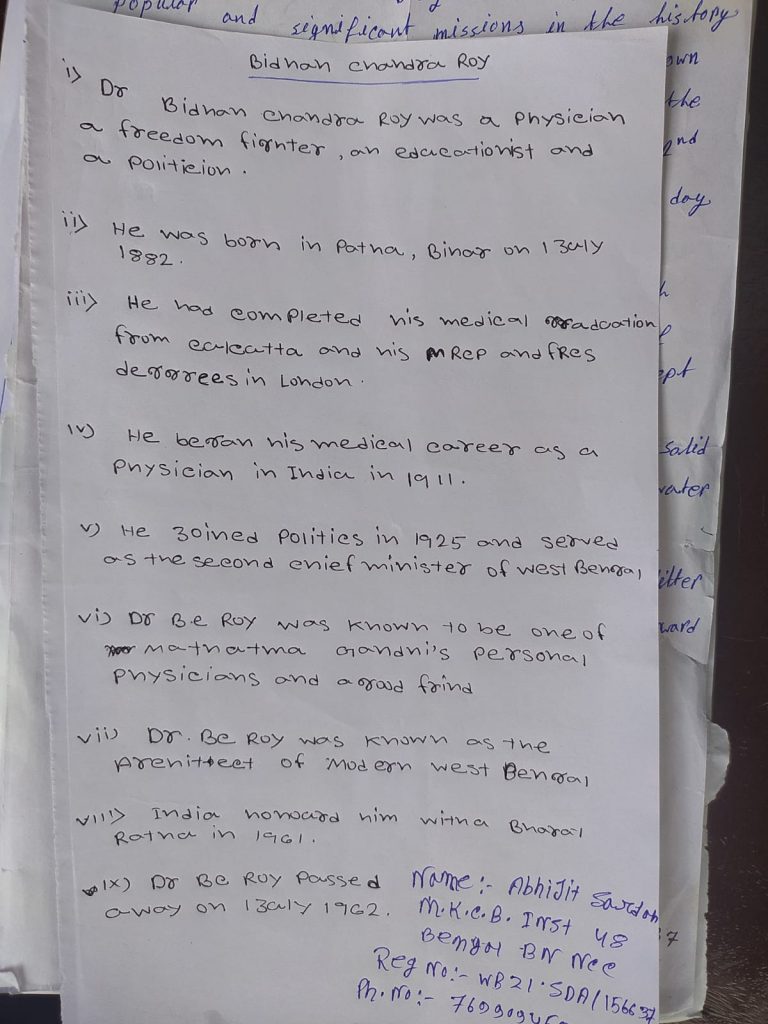 popular and significant missions in the history
own
the
2nd
day
ept
salid
water
itter
ward
Bidhan chandra Roy
i) Dr Bidhan chandra Roy was a Physician
a freedom fighter, an educationist and
a Politicion.
ii) He was born in Patna, Bihar on 1 July
1882.
iii) He had completed his medical graduation
from calcatta and his MRCP and fRCS
degrees in London.
iv) He began his medical career as a
Physician in India in 1911.
v) He Joined Politics in 1925 and served
as the second chief minister of west Bengal
vi) Dr B.C Roy was known to be one of
mathatma Gandhi's Personal
Physicians and a good frind
vii) Dr. BC Roy was known as the
Architect of Modern west Bengal
viii) India honoard him with a Bharat
Ratna in 1961.
ix) Dr BC Roy Passed
away on 1 July 1962.
Name:- Abhijit Sardar
M.K.C.B. INST 48
Bengal BN NCC
Reg No:- WB21.SDA/156637
Ph. No:-